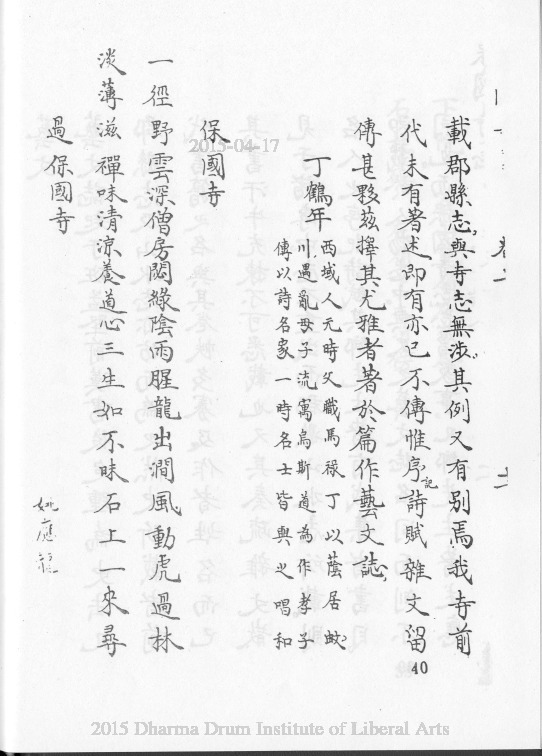 卷二
載郡縣志與寺志無涉其例又有别焉我寺前
代未有著述即有亦已不傳惟序記詩賦雜文留
傳甚夥兹擇其尤雅者著於篇作藝文誌
丁鶴年
西域人元時父職馬禄丁以蔭居蚥
川遇亂母子流寓烏斯道為作孝子
傳以詩名家一時名士皆與之唱和
保國寺
一徑野雲深僧房閟緑陰雨腥龍出澗風動虎過林
淡薄滋禪味清涼養道心三生如不昧石上一來尋
過保國寺
姚應龍
40
2015-04-17
2015 Dharma Drum Institute of Liberal Arts